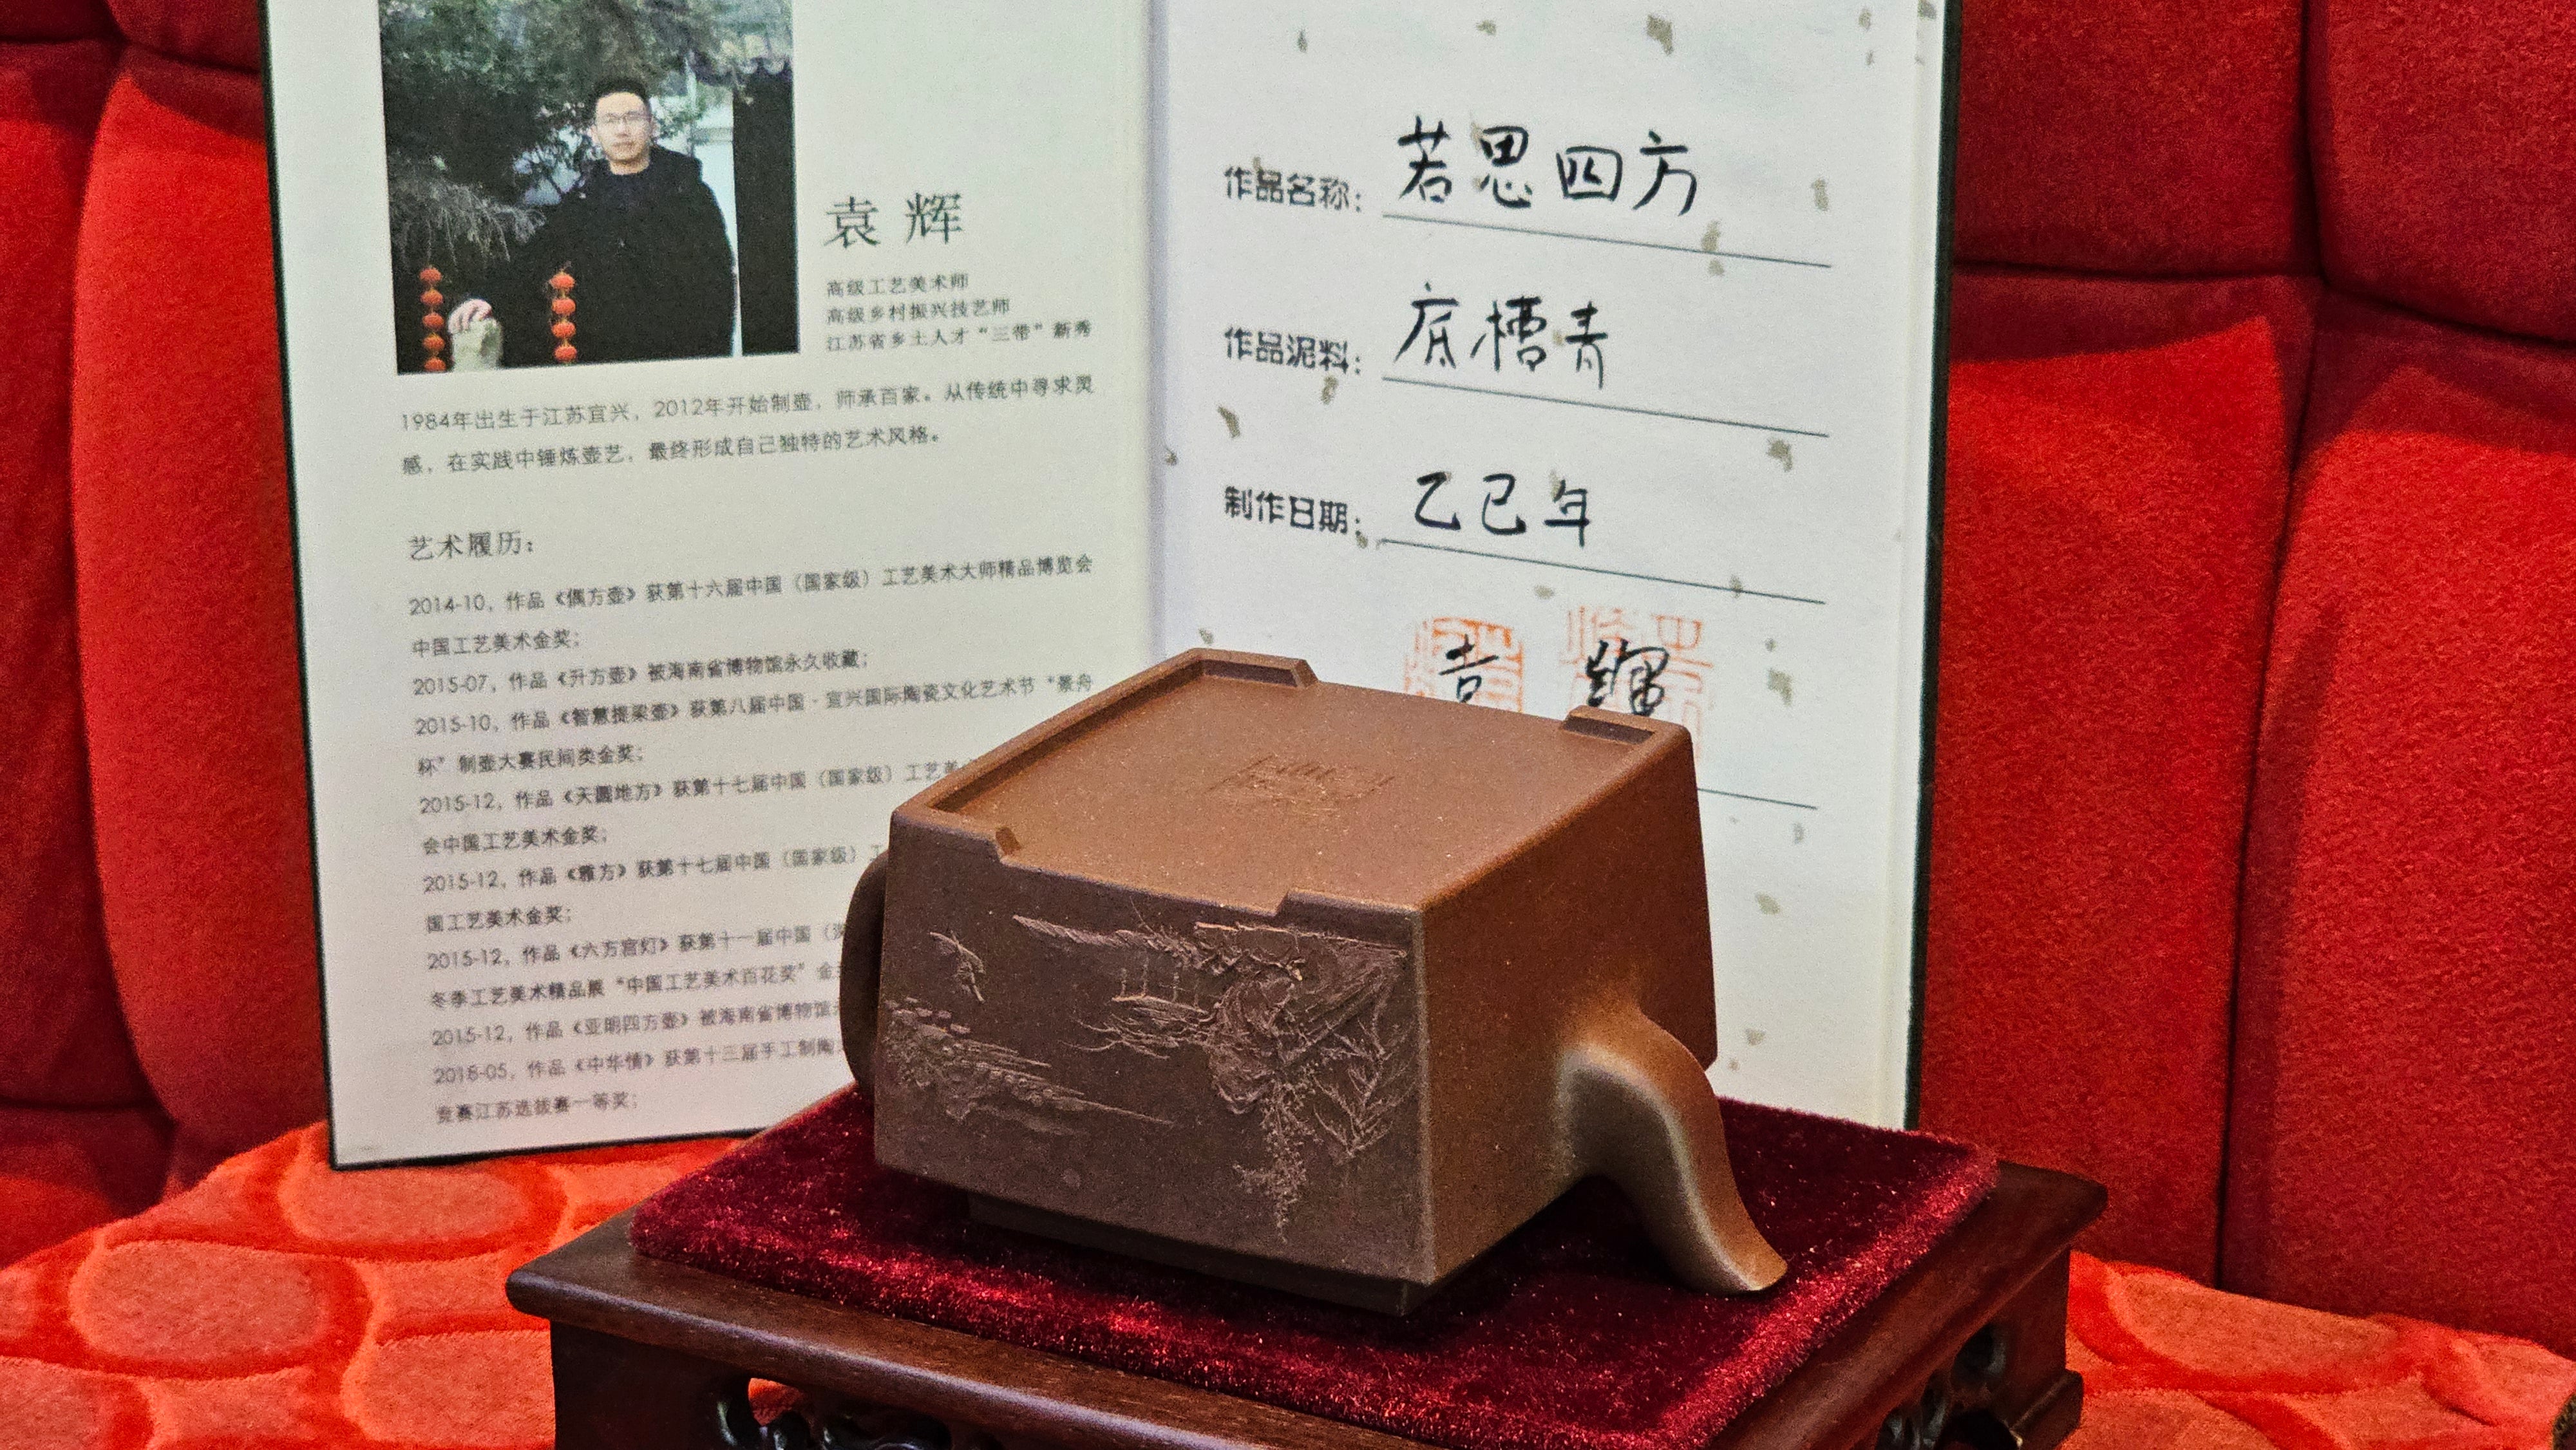 袁辉
高级工艺美术师
高级乡村振兴技艺师
江苏省乡土人才“三带”新秀
1984年出生于江苏宜兴，2012年开始制壶，师承百家。从传统中寻求灵
感，在实践中锤炼壶艺，最终形成自己独特的艺术风格。
艺术履历：
2014-10，作品《偶方壶》获第十六届中国（国家级）工艺美术大师精品博览会
中国工艺美术金奖；
2015-07，作品《升方壶》被海南省博物馆永久收藏；
2015-10，作品《智慧提梁壶》获第八届中国·宜兴国际陶瓷文化艺术节“景舟
杯”制壶大赛民间类金奖；
2015-12，作品《天圆地方》获第十七届中国（国家级）工艺美
会中国工艺美术金奖；
2015-12，作品《雅方》获第十七届中国（国家级）工
国工艺美术金奖；
2015-12，作品《六方宫灯》获第十一届中国（
冬季工艺美术精品展“中国工艺美术百花奖”金
2015-12，作品《亚明四方壶》被海南省博物馆
2018-05，作品《中华情》获第十三届手工制陶
竞赛江苏选拔赛一等奖；
作品名称：若思四方
作品泥料：底槽青
制作日期：乙巳年